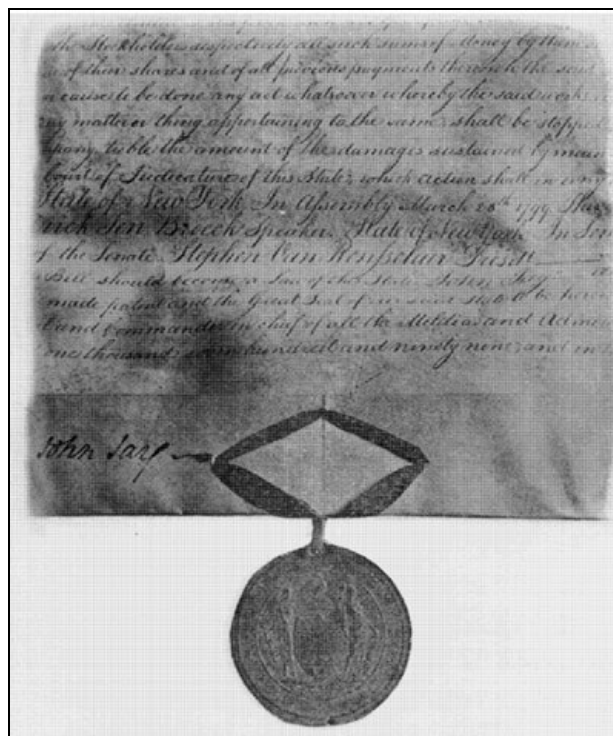 the Stockholders respectively all such sums of Money by them
of their shares and of all previous payments thereon to the said
or cause to be done any act whatsoever whereby the said works
any matter or thing appertaining to the same shall be stopped
pany treble the amount of the damages sustained by mean
Court of Judicature of this State, which action shall in
State of New York. In Assembly March 28th 1799
rick Ten Broeck Speaker. State of New York In Sen
of the Senate. Stephen Van Rensselaer Presdt
Bill should become a Law of the State. John Jay
made patent and the Great Seal of our said state to be here
and Commander in chief of all the Militia and Admir
one thousand seven hundred and ninety nine, and in
John Jay